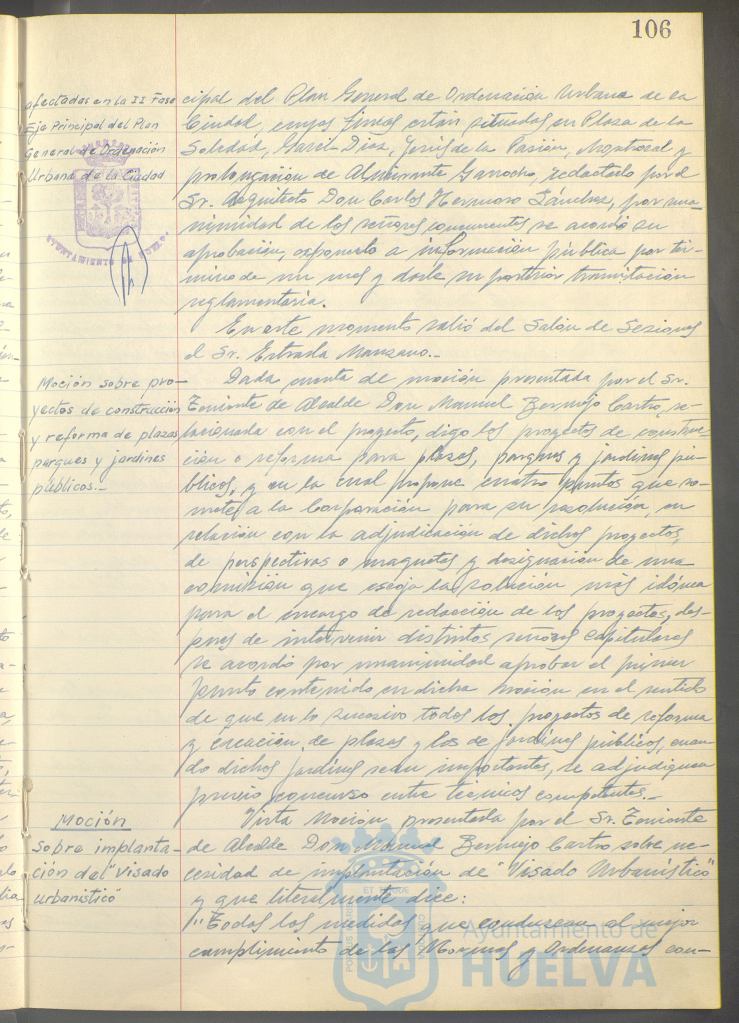 106
afectadas en la II Fase
Eje Principal del Plan
General de Ordenación
Urbana de la Ciudad
cipal del Plan General de Ordenación Urbana de la
Ciudad, cuyas fincas están situadas en Plaza de la
Soledad, García Díaz, Jesús de la Pasión, Mayoral y
prolongación de Almirante Garrocho, redactado por el
Sr. Arquitecto Don Carlos Hermoso Sánchez, por una-
nimidad de los señores concurrentes se acordó su
aprobación, exponerlo a información pública por tér-
mino de un mes y darle su posterior tramitación
reglamentaria.
En este momento salió del Salón de Sesiones
el Sr. Estrada Manzano.-
Moción sobre pro-
yectos de construcción
y reforma de plazas
parques y jardines
públicos.-
Dada cuenta de moción presentada por el Sr.
Teniente de Alcalde Don Manuel Bermejo Castro, re-
lacionada con el proyecto, digo los proyectos de construc-
ción o reforma para plazas, parques y jardines pú-
blicos, y en la cual propone cuatro puntos que so-
mete a la Corporación para su resolución, en
relación con la adjudicación de dichos proyectos,
de perspectivas o maquetas y designación de una
comisión que escoja la solución más idónea
para el encargo de redacción de los proyectos, des-
pues de intervenir distintos señores capitulares
se acordó por unanimidad aprobar el primer
punto contenido en dicha moción en el sentido
de que en lo sucesivo todos los proyectos de reforma
y creación de plazas y los de jardines públicos, cuan-
do dichos jardines sean importantes, se adjudiquen
previo concurso entre técnicos competentes.-
Moción
sobre implanta-
ción del "Visado
urbanístico"
Vista moción presentada por el Sr. Teniente
de Alcalde Don Manuel Bermejo Castro sobre ne-
cesidad de implantación de "Visado Urbanístico"
y que literalmente dice:
"Todas las medidas que conduzcan al mejor
cumplimiento de las Normas y Ordenanzas con-
Ayuntamiento de
HUELVA